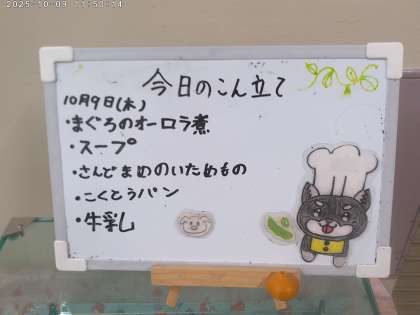 2025-10-09 11:50:14
今日のこん立て
10月9日(木)
・まぐろのオーロラ煮
・スープ
・さんどまめのいためもの
・こくとうパン
・牛乳